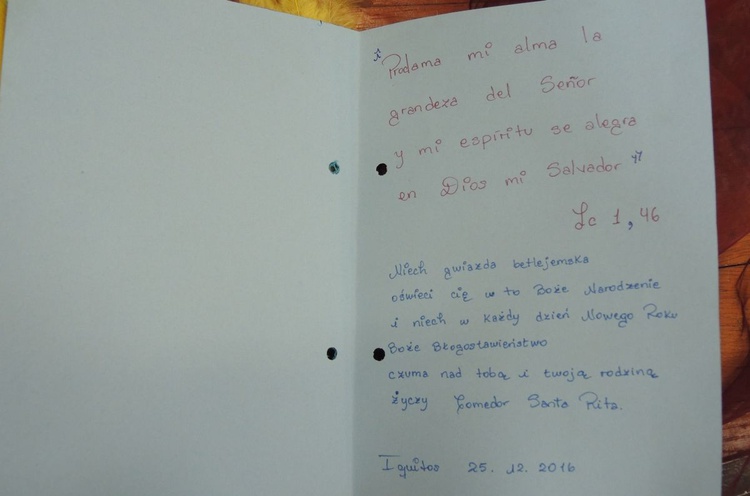 "Proclama mi alma la
grandeza del Señor
y mi espíritu se alegra
en Dios mi Salvador"
Lc 1, 46
Niech gwiazda betlejemska
oświeci cię w to Boże Narodzenie
i niech w każdy dzień Nowego Roku
Boże Błogosławieństwo
czuwa nad tobą i twoją rodziną
życzy Comedor Santa Rita.
Iquitos 25. 12. 2016